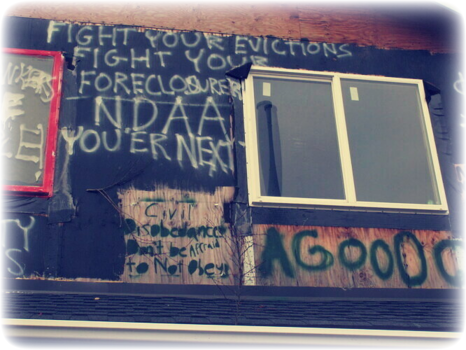 FIGHT YOUR EVICTIONS
FIGHT YOUR
FORECLOSURE!
NDAA
YOU'ER NEXT
CIVIL
DISobedance
Don't be Afraid
to Not obey
TY
S
A GOOD C